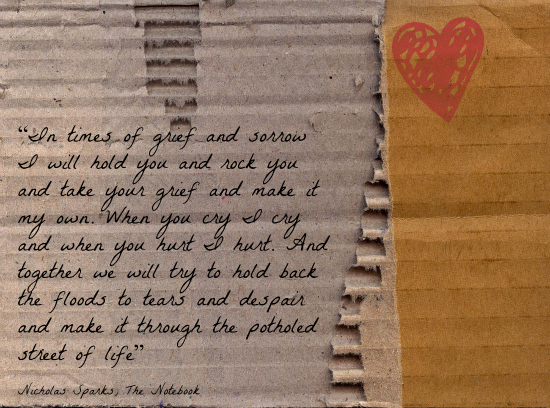 “In times of grief and sorrow
I will hold you and rock you
and take your grief and make it
my own. When you cry I cry
and when you hurt I hurt. And
together we will try to hold back
the floods to tears and despair
and make it through the potholed
street of life”
Nicholas Sparks, The Notebook